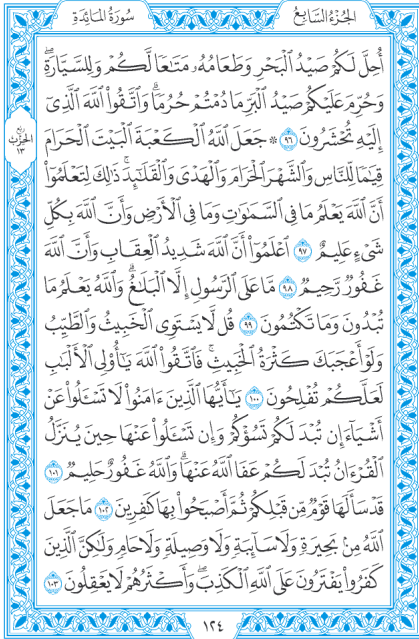 الجُزْءُ السَّابِعُ
سُورَةُ المَائِدَةِ
أُحِلَّ لَكُمْ صَيْدُ ٱلْبَحْرِ وَطَعَامُهُۥ مَتَٰعٗا لَّكُمْ وَلِلسَّيَّارَةِۖ
وَحُرِّمَ عَلَيْكُمْ صَيْدُ ٱلْبَرِّ مَا دُمْتُمْ حُرُمٗاۗ وَٱتَّقُوا۟ ٱللَّهَ ٱلَّذِىٓ
إِلَيْهِ تُحْشَرُونَ ٩٦ ۞ جَعَلَ ٱللَّهُ ٱلْكَعْبَةَ ٱلْبَيْتَ ٱلْحَرَامَ
رُبْع
الحِزْب
١٣
قِيَٰمٗا لِّلنَّاسِ وَٱلشَّهْرَ ٱلْحَرَامَ وَٱلْهَدْىَ وَٱلْقَلَٰٓئِدَۚ ذَٰلِكَ لِتَعْلَمُوٓا۟
أَنَّ ٱللَّهَ يَعْلَمُ مَا فِى ٱلسَّمَٰوَٰتِ وَمَا فِى ٱلْأَرْضِ وَأَنَّ ٱللَّهَ بِكُلِّ
شَىْءٍ عَلِيمٌ ٩٧ ٱعْلَمُوٓا۟ أَنَّ ٱللَّهَ شَدِيدُ ٱلْعِقَابِ وَأَنَّ ٱللَّهَ
غَفُورٞ رَّحِيمٞ ٩٨ مَّا عَلَى ٱلرَّسُولِ إِلَّا ٱلْبَلَٰغُۗ وَٱللَّهُ يَعْلَمُ مَا
تُبْدُونَ وَمَا تَكْتُمُونَ ٩٩ قُل لَّا يَسْتَوِى ٱلْخَبِيثُ وَٱلطَّيِّبُ
وَلَوْ أَعْجَبَكَ كَثْرَةُ ٱلْخَبِيثِۚ فَٱتَّقُوا۟ ٱللَّهَ يَٰٓأُو۟لِى ٱلْأَلْبَٰبِ
لَعَلَّكُمْ تُفْلِحُونَ ١٠٠ يَٰٓأَيُّهَا ٱلَّذِينَ ءَامَنُوا۟ لَا تَسْـَٔلُوا۟ عَنْ
أَشْيَآءَ إِن تُبْدَ لَكُمْ تَسُؤْكُمْ وَإِن تَسْـَٔلُوا۟ عَنْهَا حِينَ يُنَزَّلُ
ٱلْقُرْءَانُ تُبْدَ لَكُمْ عَفَا ٱللَّهُ عَنْهَاۗ وَٱللَّهُ غَفُورٌ حَلِيمٞ ١٠١
قَدْ سَأَلَهَا قَوْمٞ مِّن قَبْلِكُمْ ثُمَّ أَصْبَحُوا۟ بِهَا كَٰفِرِينَ ١٠٢ مَا جَعَلَ
ٱللَّهُ مِنۢ بَحِيرَةٖ وَلَا سَآئِبَةٖ وَلَا وَصِيلَةٖ وَلَا حَامٖ وَلَٰكِنَّ ٱلَّذِينَ
كَفَرُوا۟ يَفْتَرُونَ عَلَى ٱللَّهِ ٱلْكَذِبَۖ وَأَكْثَرُهُمْ لَا يَعْقِلُونَ ١٠٣
١٢٤